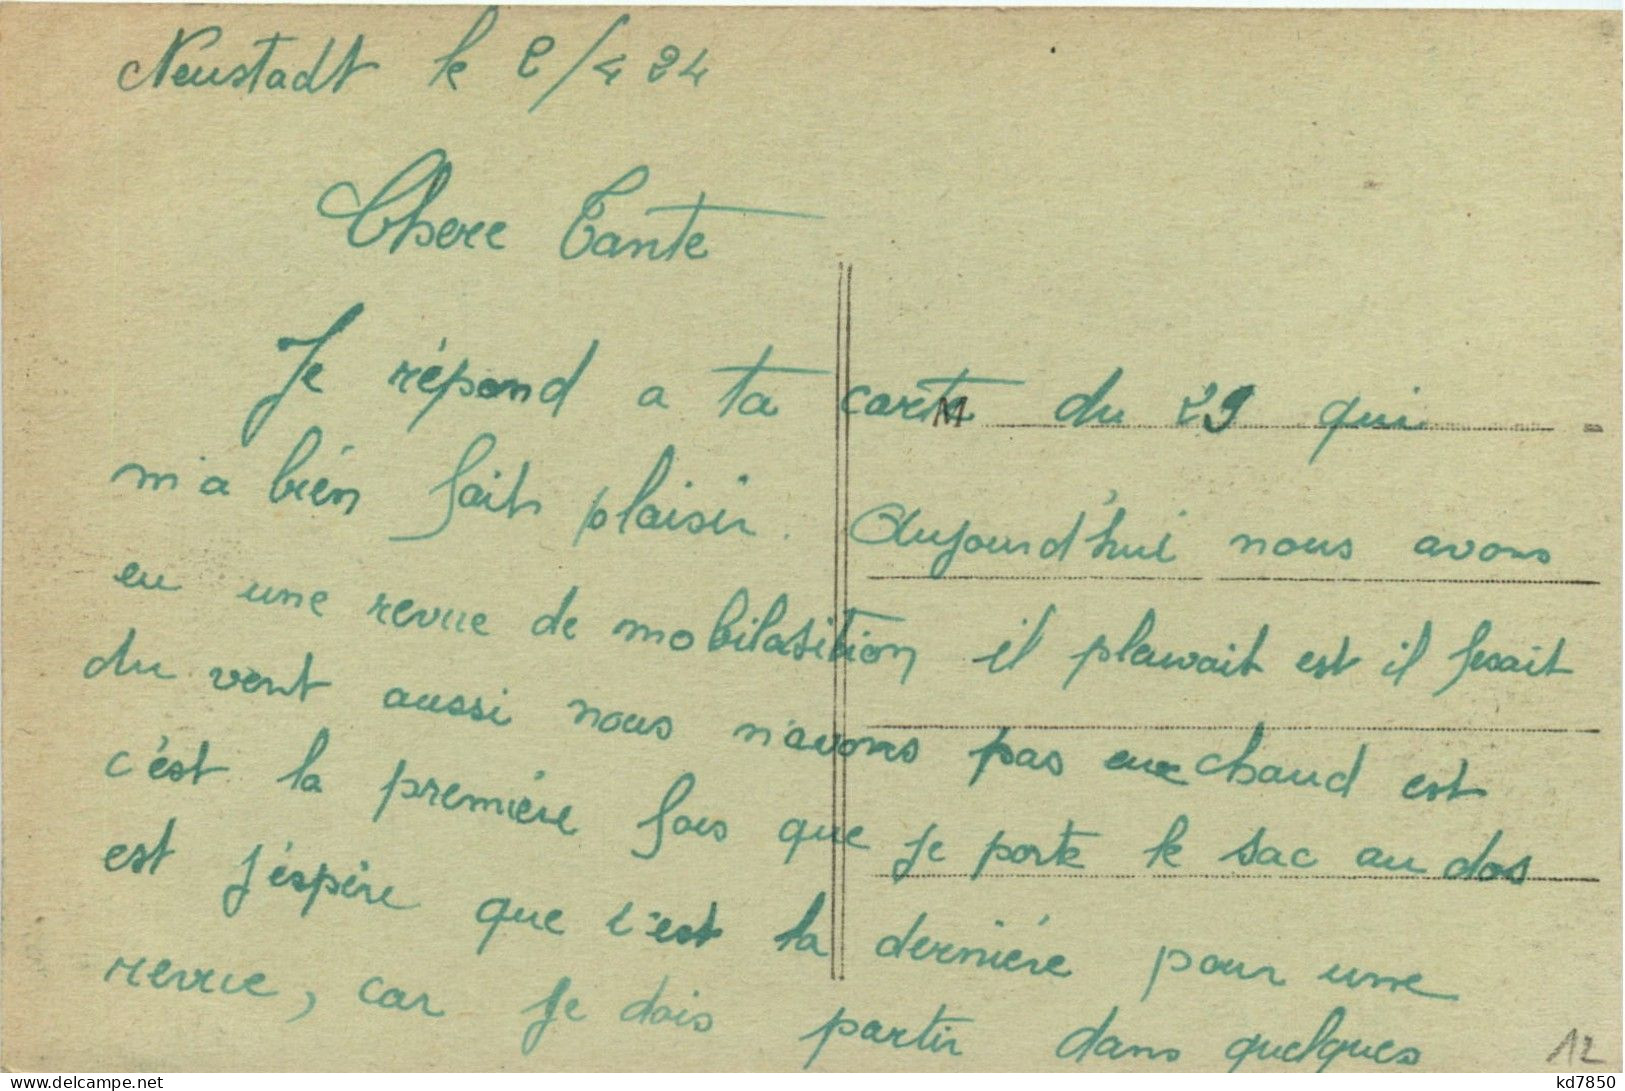 Neustadt le 2/4 24
Chere Tante
Je répond a ta carte du 29 qui
M
m'a bién fait plaisir. Aujourd'hui nous avons
eu une revue de mobilasition il pleuvait est il fesait
du vent aussi nous n'avons pas eue chaud est
c'est la premiére fois que je porte le sac au dos
est j'éspère que c'est la derniére pour une
revue, car je dois partir dans quelques
12
delcampe.net
kd7850